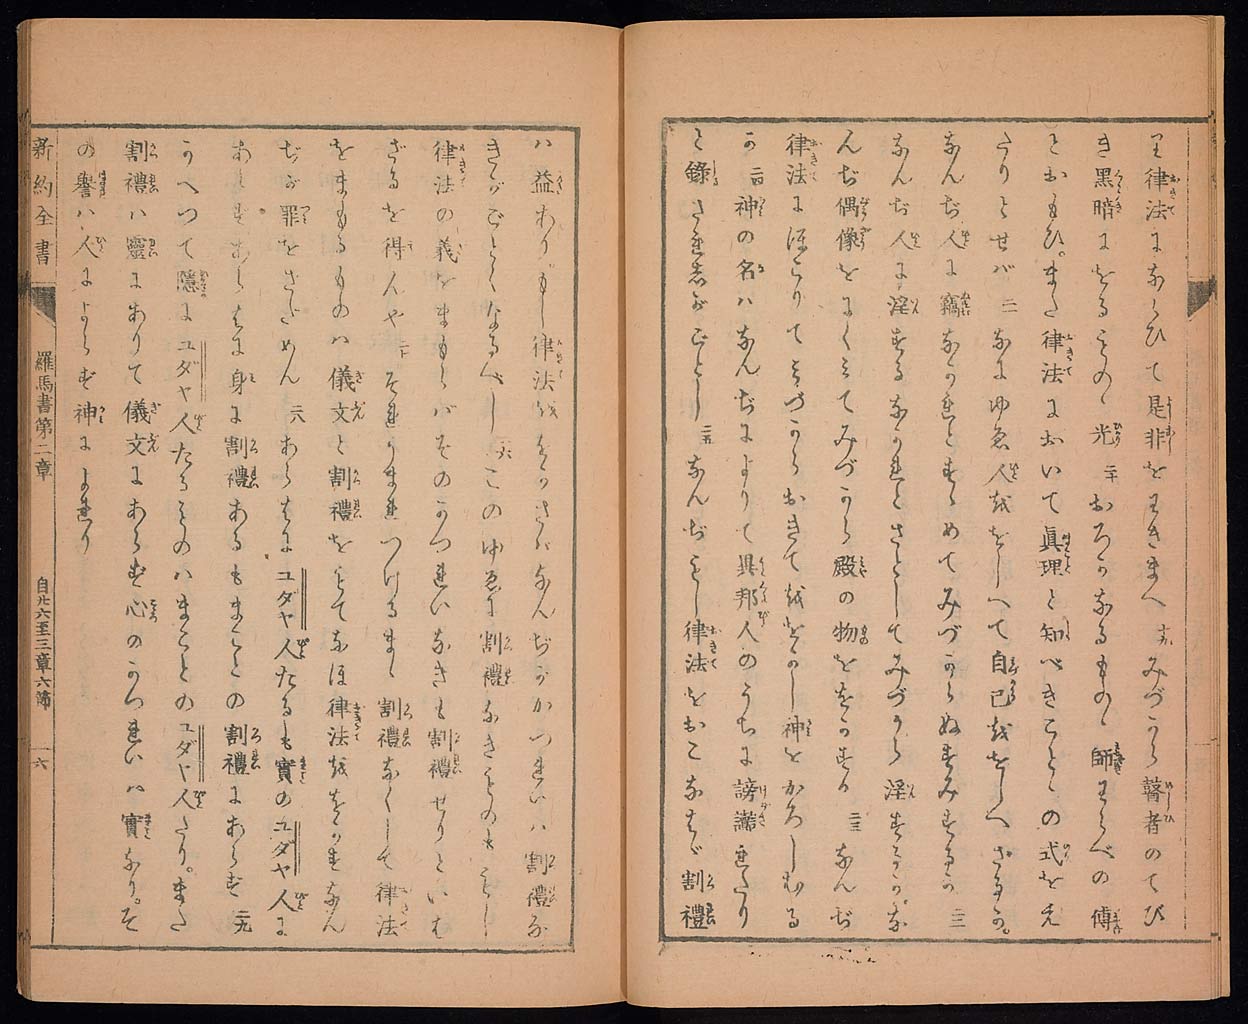 り律法にならひて是非をわきまへ十九みづから瞽者のてび
き黒暗にをるものゝ光二十おろかなるものゝ師わらべの傅
とおもひ。また律法において眞理と知べきことの式をえ
たりとせバ二一なにゆゑ人ををしへて自己ををしへざるか。
なんぢ人に竊なかれとすゝめてみづからぬすみするか二二
なんぢ人に淫するなかれとさとしてみづから淫するか。な
んぢ偶像をにくみてみづから殿の物ををかすか二三なんぢ
律法にほこりてみづからおきてををかし神をかろしむる
か二四神の名ハなんぢによりて異邦人のうちに謗讟れたり
と錄されしがごとし二五なんぢもし律法をおこなはゞ割禮
ハ益あり。もし律法ををかさバなんぢがかつれいハ割禮な
きがごとくなるべし二六このゆゑに割禮なきものももし
律法の義をまもらバそのかつれいなきも割禮せりといは
ざるを得んや二七それうまれつけるまゝ割禮なくして律法
をまもるものハ儀文と割禮をもてなほ律法ををかすなん
ぢが罪をさだめん二八あらはにユダヤ人たるも實のユダヤ人に
あらずあらはに身に割禮あるもまことの割禮にあらず二九
かへつて隱にユダヤ人たるものハまことのユダヤ人たり。また
割禮ハ靈にありて儀文にあらず心のかつれいハ實なり。そ
の譽ハ人によらず神によれり
新約全書 羅馬書第二章 自廿六至三章六節 一六